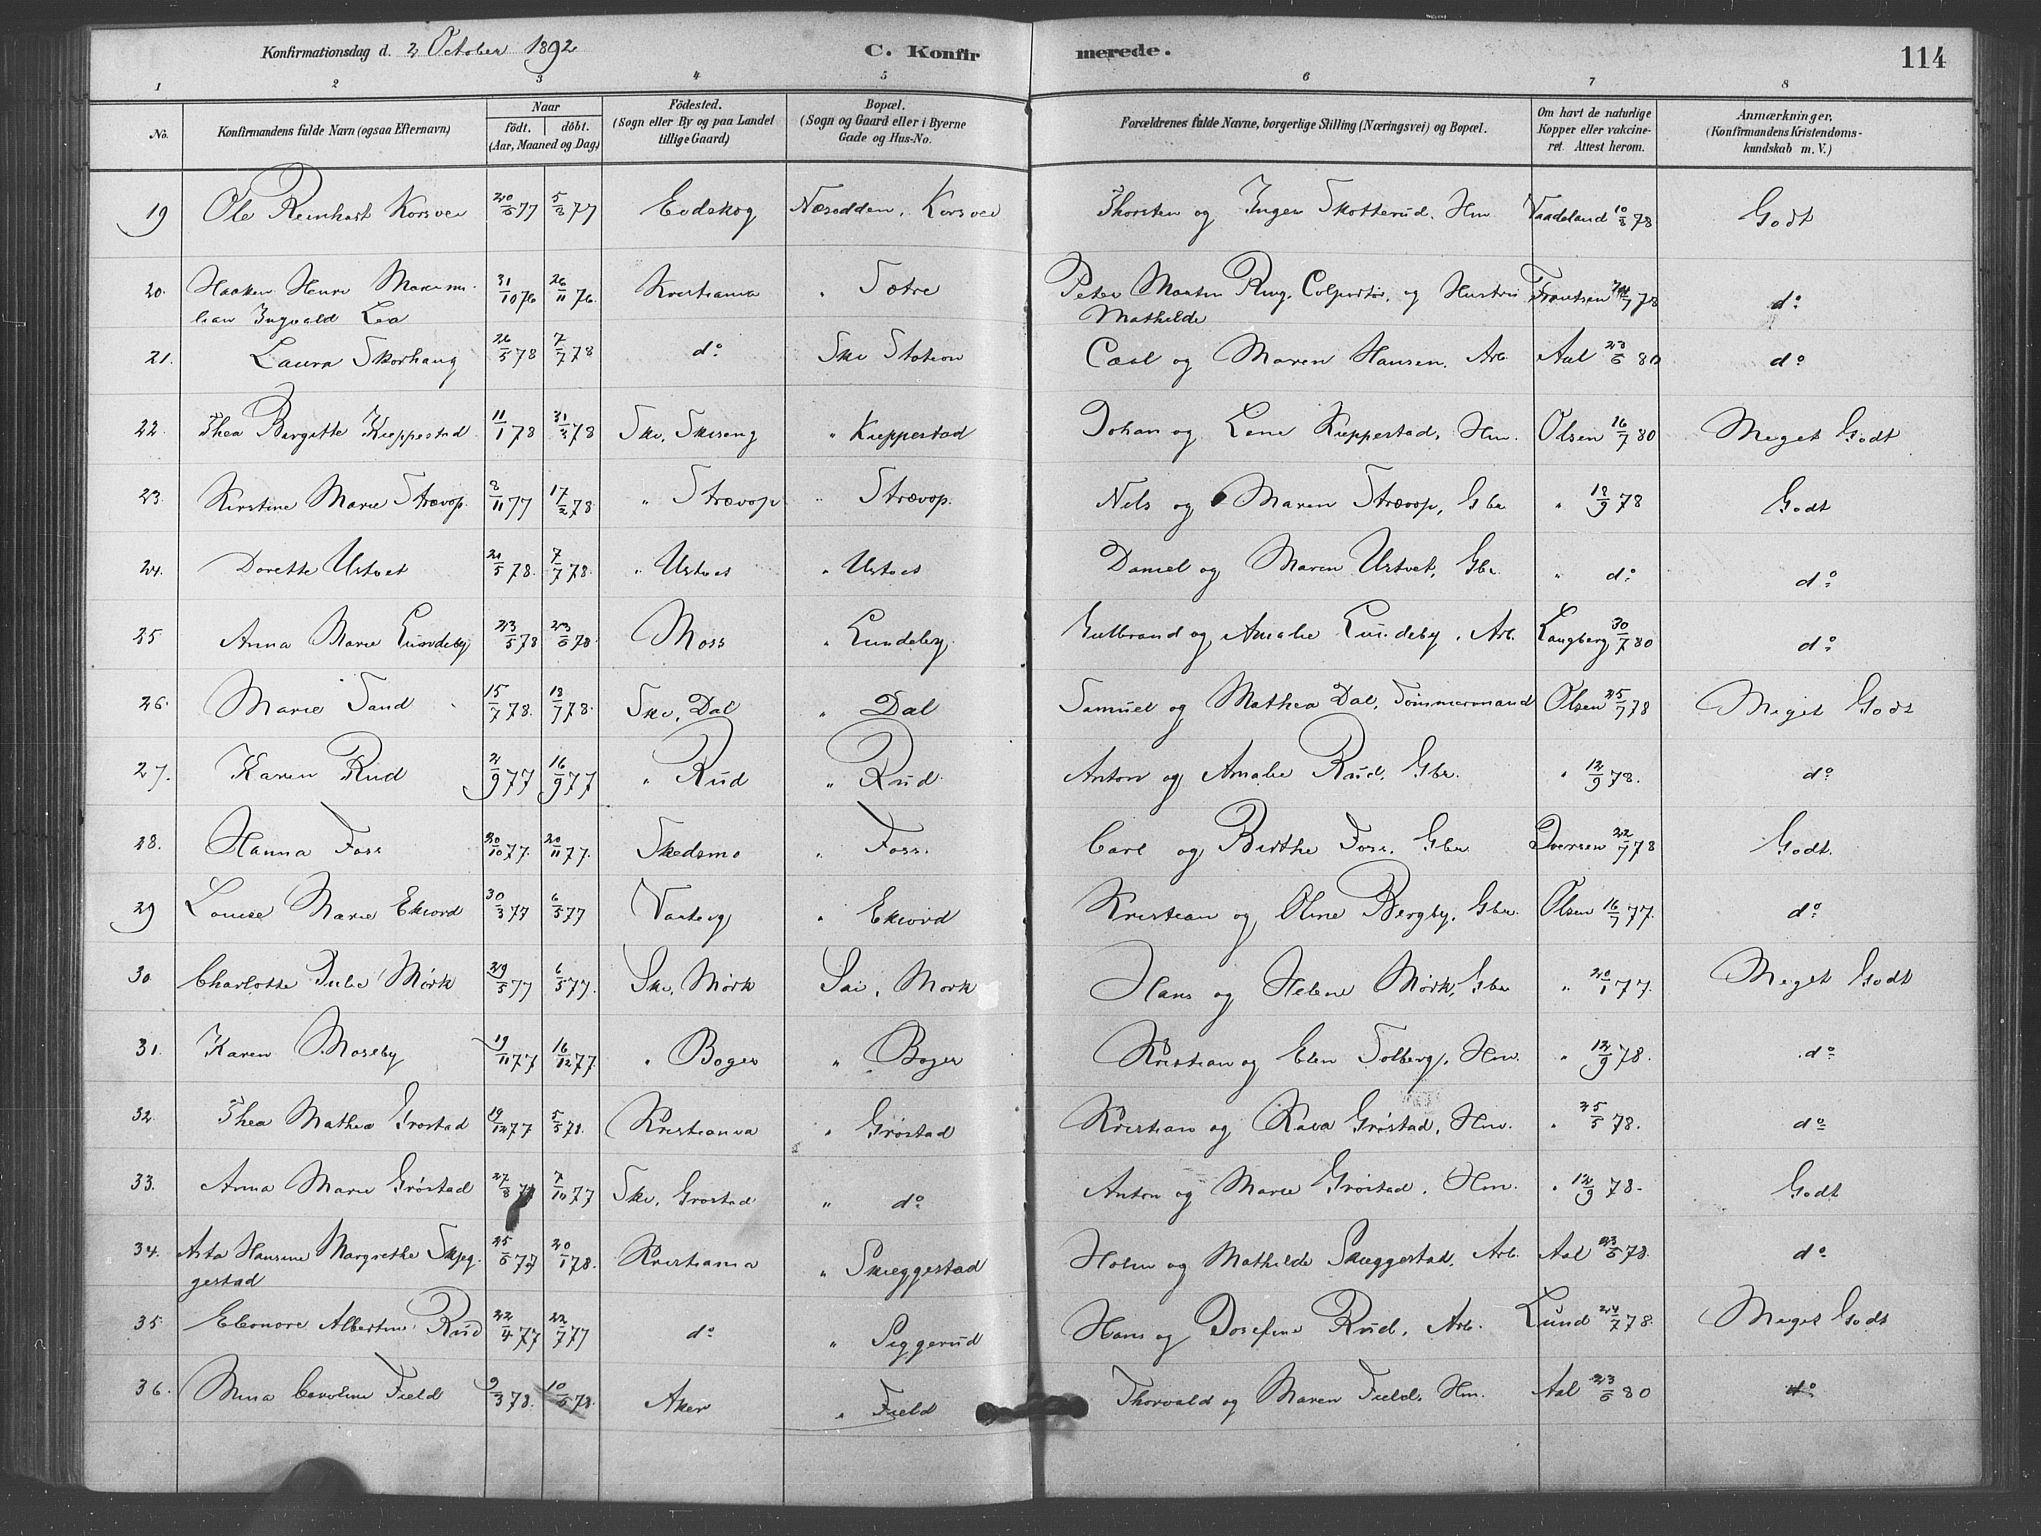 Konfirmationsdag d. 2 October 1892 C. Konfirmerede. 114
1 2 3 4 5 6 7 8
No. Konfirmandens fulde Navn (ogsaa Efternavn) Naar født. døbt. (Aar, Maaned og Dag) Fødested. (Sogn eller By og paa Landet tillige Gaard) Bopæl. (Sogn og Gaard eller i Byerne Gade og Hus-No. Forældrenes fulde Navne, borgerlige Stilling (Næringsvei) og Bopæl. Om havt de naturlige Kopper eller vakcineret. Attest herom. Anmærkninger, (Konfirmandens Kristendomskundskab m. V.)
19 Ole Reinhart Korsvei 20/6 77 5/8 77 Eidskog Næsodden, Korsvei Thorsten og Inger Skotterud, Hm Vaadeland 10/8 78 Godt
20. Haaken Henri Maximilian Ingvald Lea 31/10 76 26/11 76. Kristiania " Sætre Peter Martin Ring, Colportør, og Hustru Mathilde Frantsen 78 do
21. Laura Skorhaug 26/5 78 7/7 78 do Ski Station Carl og Maren Hansen, Arb. Aal 23/6 80 do
22. Thea Birgitte Kieppestad 11/1 78 31/3 78 Ski, Skiseng " Kieppestad Johan og Lene Kieppestad, Hm. Olsen 16/7 80 Meget Godt
23. Kirstine Marie Strævop. 8/11 77 17/2 78 " Strævop " Strævop. Nils og Maren Strævop, Gbr " 18/9 78 Godt
24. Dorette Ustvet 21/5 78. 7/7 78. " Ustvet " Ustvet Daniel og Maren Ustvet, Gbr " do do
25 Anna Marie Lundeby 23/5 78 23/6 78. Moss " Lundeby. Gulbrand og Amalie Lundeby, Arb. Langberg 30/7 80 do
26. Marie Sand 15/7 78. 18/7 78. Ski, Dal " Dal Samuel og Mathea Dal, Tømmermand Olsen 25/7 78 Meget Godt
27. Karen Rud 2/9 77 16/9 77 " Rud " Rud Anton og Amalie Rud, Gbr. " 12/9 78. do
28. Hanna Foss 20/10 77. 20/11 77. Skedsmo " Foss. Carl og Birthe Foss. Gbr Iversen 22/7 78 Godt.
29 Louise Marie Ekvord 30/3 77 6/5 77 Vaaler " Ekvord Kristian og Oline Bergby, Gbr. Olsen 16/7 77. do
30. Charlotte Julie Mørk 29/5 77 6/5 77. Ski, Mørk Ski, Mørk Hans og Helene Mørk, Gbr " 20/1 77. Meget Godt
31. Karen Moseby 19/11 77 16/12 77. " Boger " Boger Kristian og Elen Solberg, Hm. " 12/9 78. do
32. Thea Mathea Grøstad 19/12 77 5/5 78. Kristiania " Grøstad Kristian og Kaia Grøstad, Hm. " 25/5 78. do
33. Anna Marie Grøstad 27/8 77 7/10 77 Ski, Grøstad " do Anton og Marie Grøstad, Hm. " 12/9 78. Godt
34. Asta Hansine Margrethe Skjeggestad 25/6 77 20/1 78. Kristiania " Skieggestad Holm og Mathilde Skieggestad, Arb. Aal 23/5 78. do
35. Eleonore Albertine Rud 22/4 77 22/7 77 do " Siggerud Hans og Josefine Rud, Arb. Lund 24/7 78. Meget Godt
36. Mina Caroline Field 9/3 78. 10/6 78. Aker " Field Thorvald og Maren Field. Hm. Aal 23/6 80 do